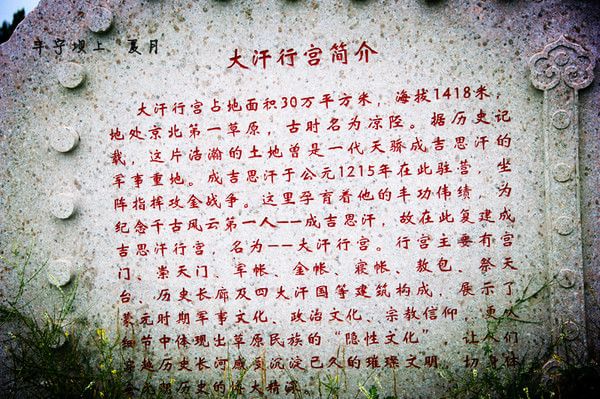 半字坝上 夏月
大汗行宫简介
大汗行宫占地面积30万平方米，海拔1418米，
地处京北第一草原，古时名为凉陉。据历史记
载，这片浩瀚的土地曾是一代天骄成吉思汗的
军事重地。成吉思汗于公元1215年在此驻营，坐
阵指挥攻金战争。这里孕育着他的丰功伟绩，为
纪念千古风云第一人——成吉思汗，故在此复建成
吉思汗行宫，名为——大汗行宫。行宫主要有宫
门、崇天门、军帐、金帐、寝帐、敖包、祭天
台、历史长廊及四大汗国等建筑构成，展示了
蒙元时期军事文化、政治文化、宗教信仰，更从
细节中体现出草原民族的“隐性文化” 让人们
穿越历史长河感受沉淀已久的璀璨文明，切身体
会 历史的博大精深。